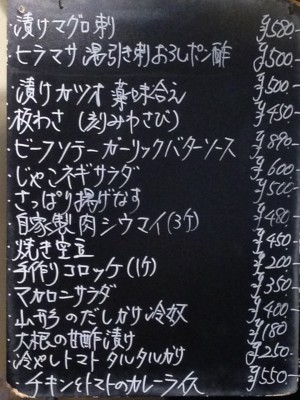 ・漬けマグロ刺 ¥580-
・ヒラマサ湯引き刺おろしポン酢 ¥500-
・漬けカツオ薬味合え ¥500-
・板わさ(刻みわさび) ¥450-
・ビーフソテーガーリックバターソース ¥890-
・じゃこネギサラダ ¥600-
・さっぱり揚げなす ¥500-
・自家製肉シウマイ(3ケ) ¥480-
・焼き空豆 ¥450-
・手作りコロッケ(1ケ) ¥200-
・マカロニサラダ ¥350-
・山形のだしがけ冷奴 ¥400-
・大根の甘酢漬け ¥180-
・冷やしトマトタルタルがけ ¥250-
・チキンとトマトのカレーライス ¥550-